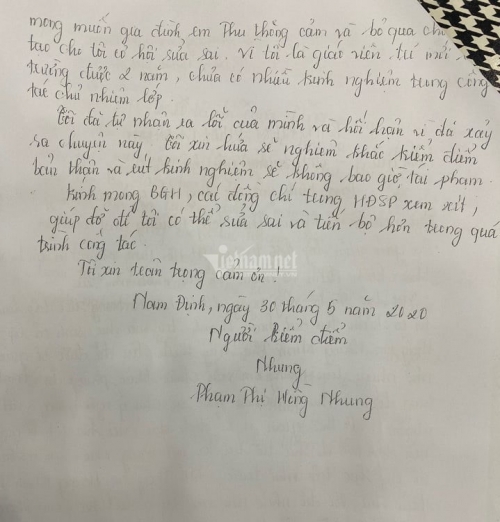 mong muốn gia đình em Thu thông cảm và bỏ qua ch
tạo cho tôi cơ hội sửa sai. Vì tôi là giáo viên
trường được 2 năm, chưa có nhiều kinh nghiệm trong công
tác chủ nhiệm lớp.
Tôi đã tự nhận ra lỗi của mình và hối hận vì đã xảy
ra chuyện này. Tôi xin hứa sẽ nghiêm khắc kiểm điểm
bản thân và rút kinh nghiệm sẽ không bao giờ tái phạm.
Kính mong BGH, các đồng chí trong HĐSP xem xét,
giúp đỡ để tôi có thể sửa sai và tiến bộ hơn trong quá
trình công tác.
vietnamnet
Tôi xin trân trọng cảm ơn!
Nam Định, ngày 30 tháng 5 năm 2020
Người kiểm điểm
Nhung
Phạm Thị Hồng Nhung